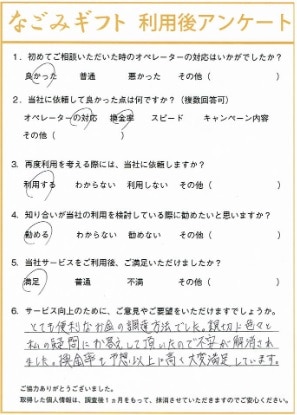 なごみギフト 利用後アンケート
1．初めてご相談いただいた時のオペレーターの対応はいかがでしたか？
良かった 普通 悪かった その他（ ）
2．当社に依頼して良かった点は何ですか？（複数回答可）
オペレーターの対応 換金率 スピード キャンペーン内容
その他（ ）
3．再度利用を考える際には、当社に依頼しますか？
利用する わからない 利用しない その他（ ）
4．知り合いが当社の利用を検討している際に勧めたいと思いますか？
勧める わからない 勧めない その他（ ）
5．当社サービスをご利用後、ご満足いただけましたか？
満足 普通 不満 その他（ ）
6．サービス向上のために、ご意見やご要望をいただけますでしょうか。
とても便利なお金の調達方法でした。親切に色々と
私の疑問にお答えして頂いたので不安が解消され
ました。換金率も予想以上に高く大変満足しています。
ご協力ありがとうございました。
取得した個人情報は、調査後1ヵ月をもって、抹消させていただきますのでご安心ください。